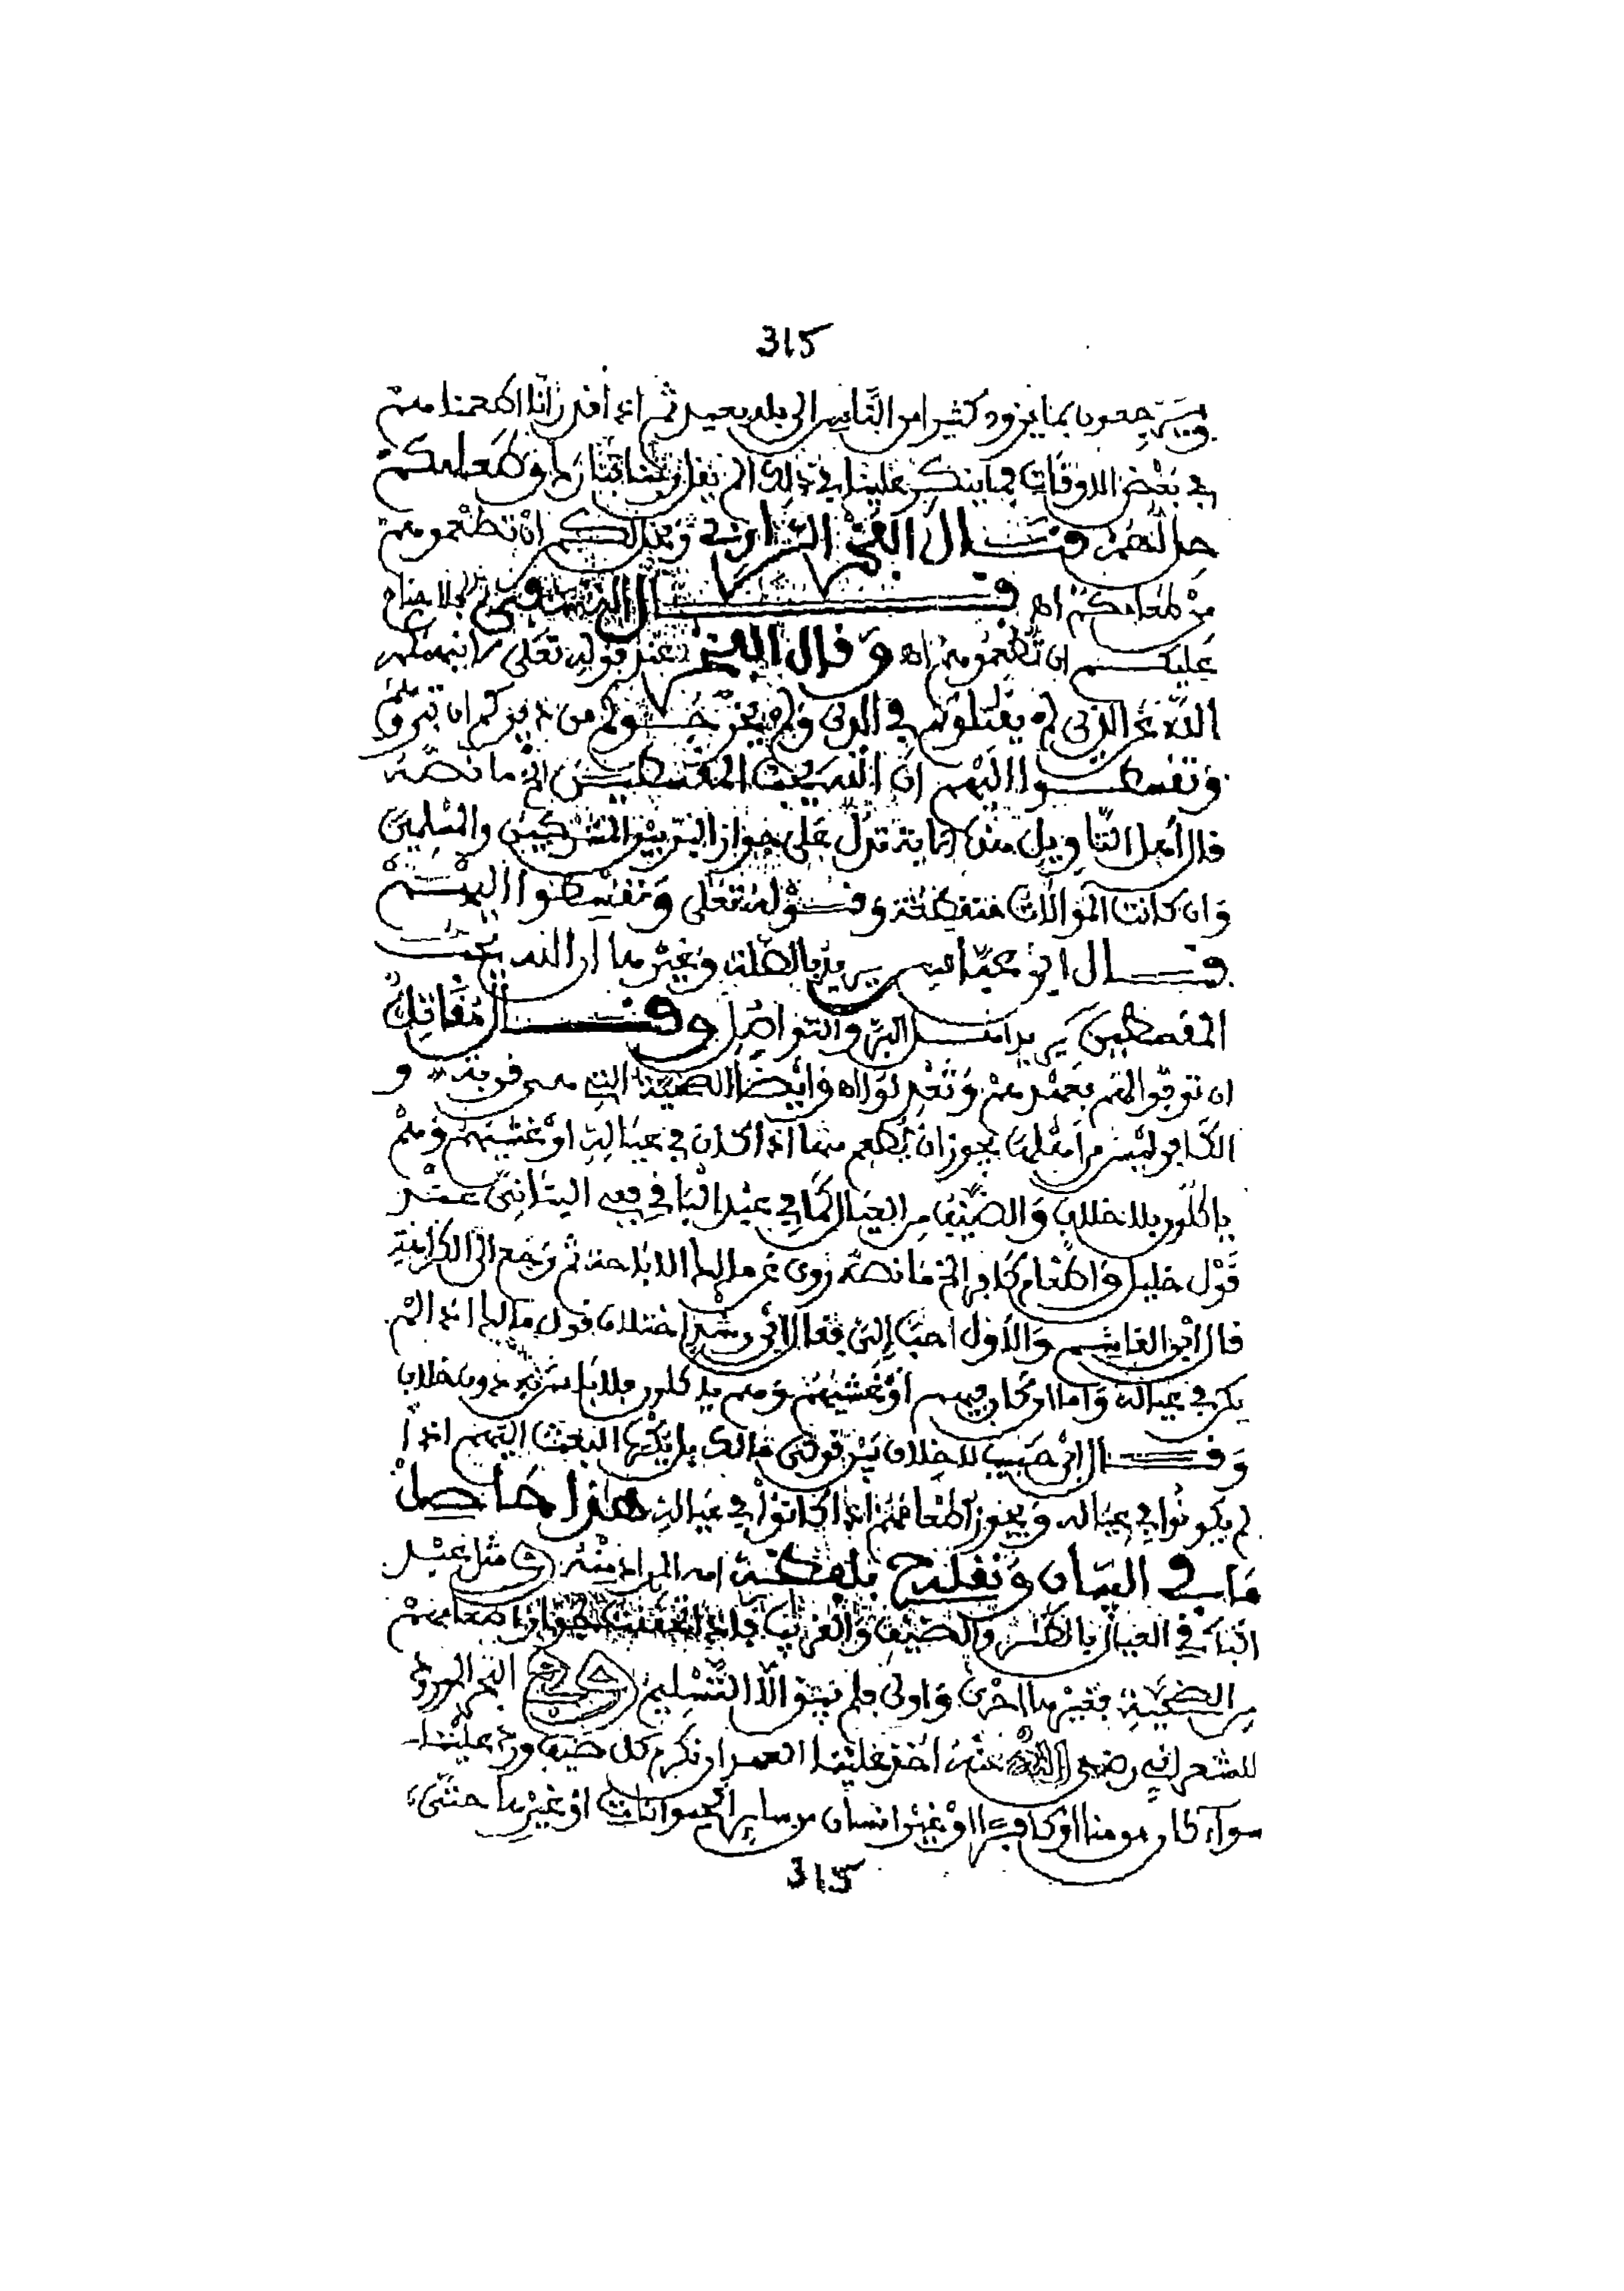 315
ويرجعون بما يزود كثيرا من الناس الى بلد بعيد ثم اذا قدر انا اطعمنا منهم
في بعض الاوقات فما ينكر علينا في ذلك الم يقل ربنا تبارك وطعامكم
حل لهم قال الفخر الرازي ويحل لكم ان تطعموهم
من طعامكم اه قال لا جناح
عليكم ان تطعموهم اه وقال عند قوله تعلى لا ينهيكم
الله عن الذين لم يقتلوكم في الدين ولم يخرجوكم من ديركم ان تبروهم
وتقسطوا اليهم ان الله يحب المقسطين الخ ما نصه
قال اهل التاويل هذه الاية تدل على جواز البر بين المشركين والمسلمين
وان كانت الموالات منقطعة وقوله تعلى وتقسطوا اليهم
قال ابن عباس يريد بالصلة وغيرها ان الله يحب
المقسطين يريد اهل البر والتواصل وقال مقاتل
ان توفوا لهم بعهدهم وتعدلوا اه وايضا الضحية التي هي قربة و
الكافر ليس من اهلها يجوز ان يطعم منها اذا كان في عياله او غشيهم وهم
ياكلون بلا خلاف والضيف من العيال كما في عبد الباقي ففي البناني عند
قول خليل واطعام كافر الخ ما نصه روى عن مالك الاباحة ثم رجع الى الكراهة
قال ابن القاسم والاول احب الي فقال ابن رشد اختلاف قول مالك اذا لم
يكن في عياله واما ان كان فيهم او غشيهم وهم ياكلون فلا باس به دون خلاف
وقال ابن حبيب لا خلاف بين قولي مالك بل يكره البعث اليهم اذا
لم يكونوا في عياله ويجوز اطعامهم اذا كانوا في عياله هذا حاصل
ما في البيان ونقله ح بلفظه اه المراد منه مثل عبد
الباقي في العيال بالظئر والضيف والقريب فاذا اطعامهم
من الضحية فغيرها احرى واولى فلم يبق الا التسليم البحر المورود
للشعراني رضي الله عنه اخذ علينا العهد ان نكرم كل ضيف ورد علينا
سواء كان مومنا او كافرا او غير انسان من ساير الحيوانات او غيرها حتى
315